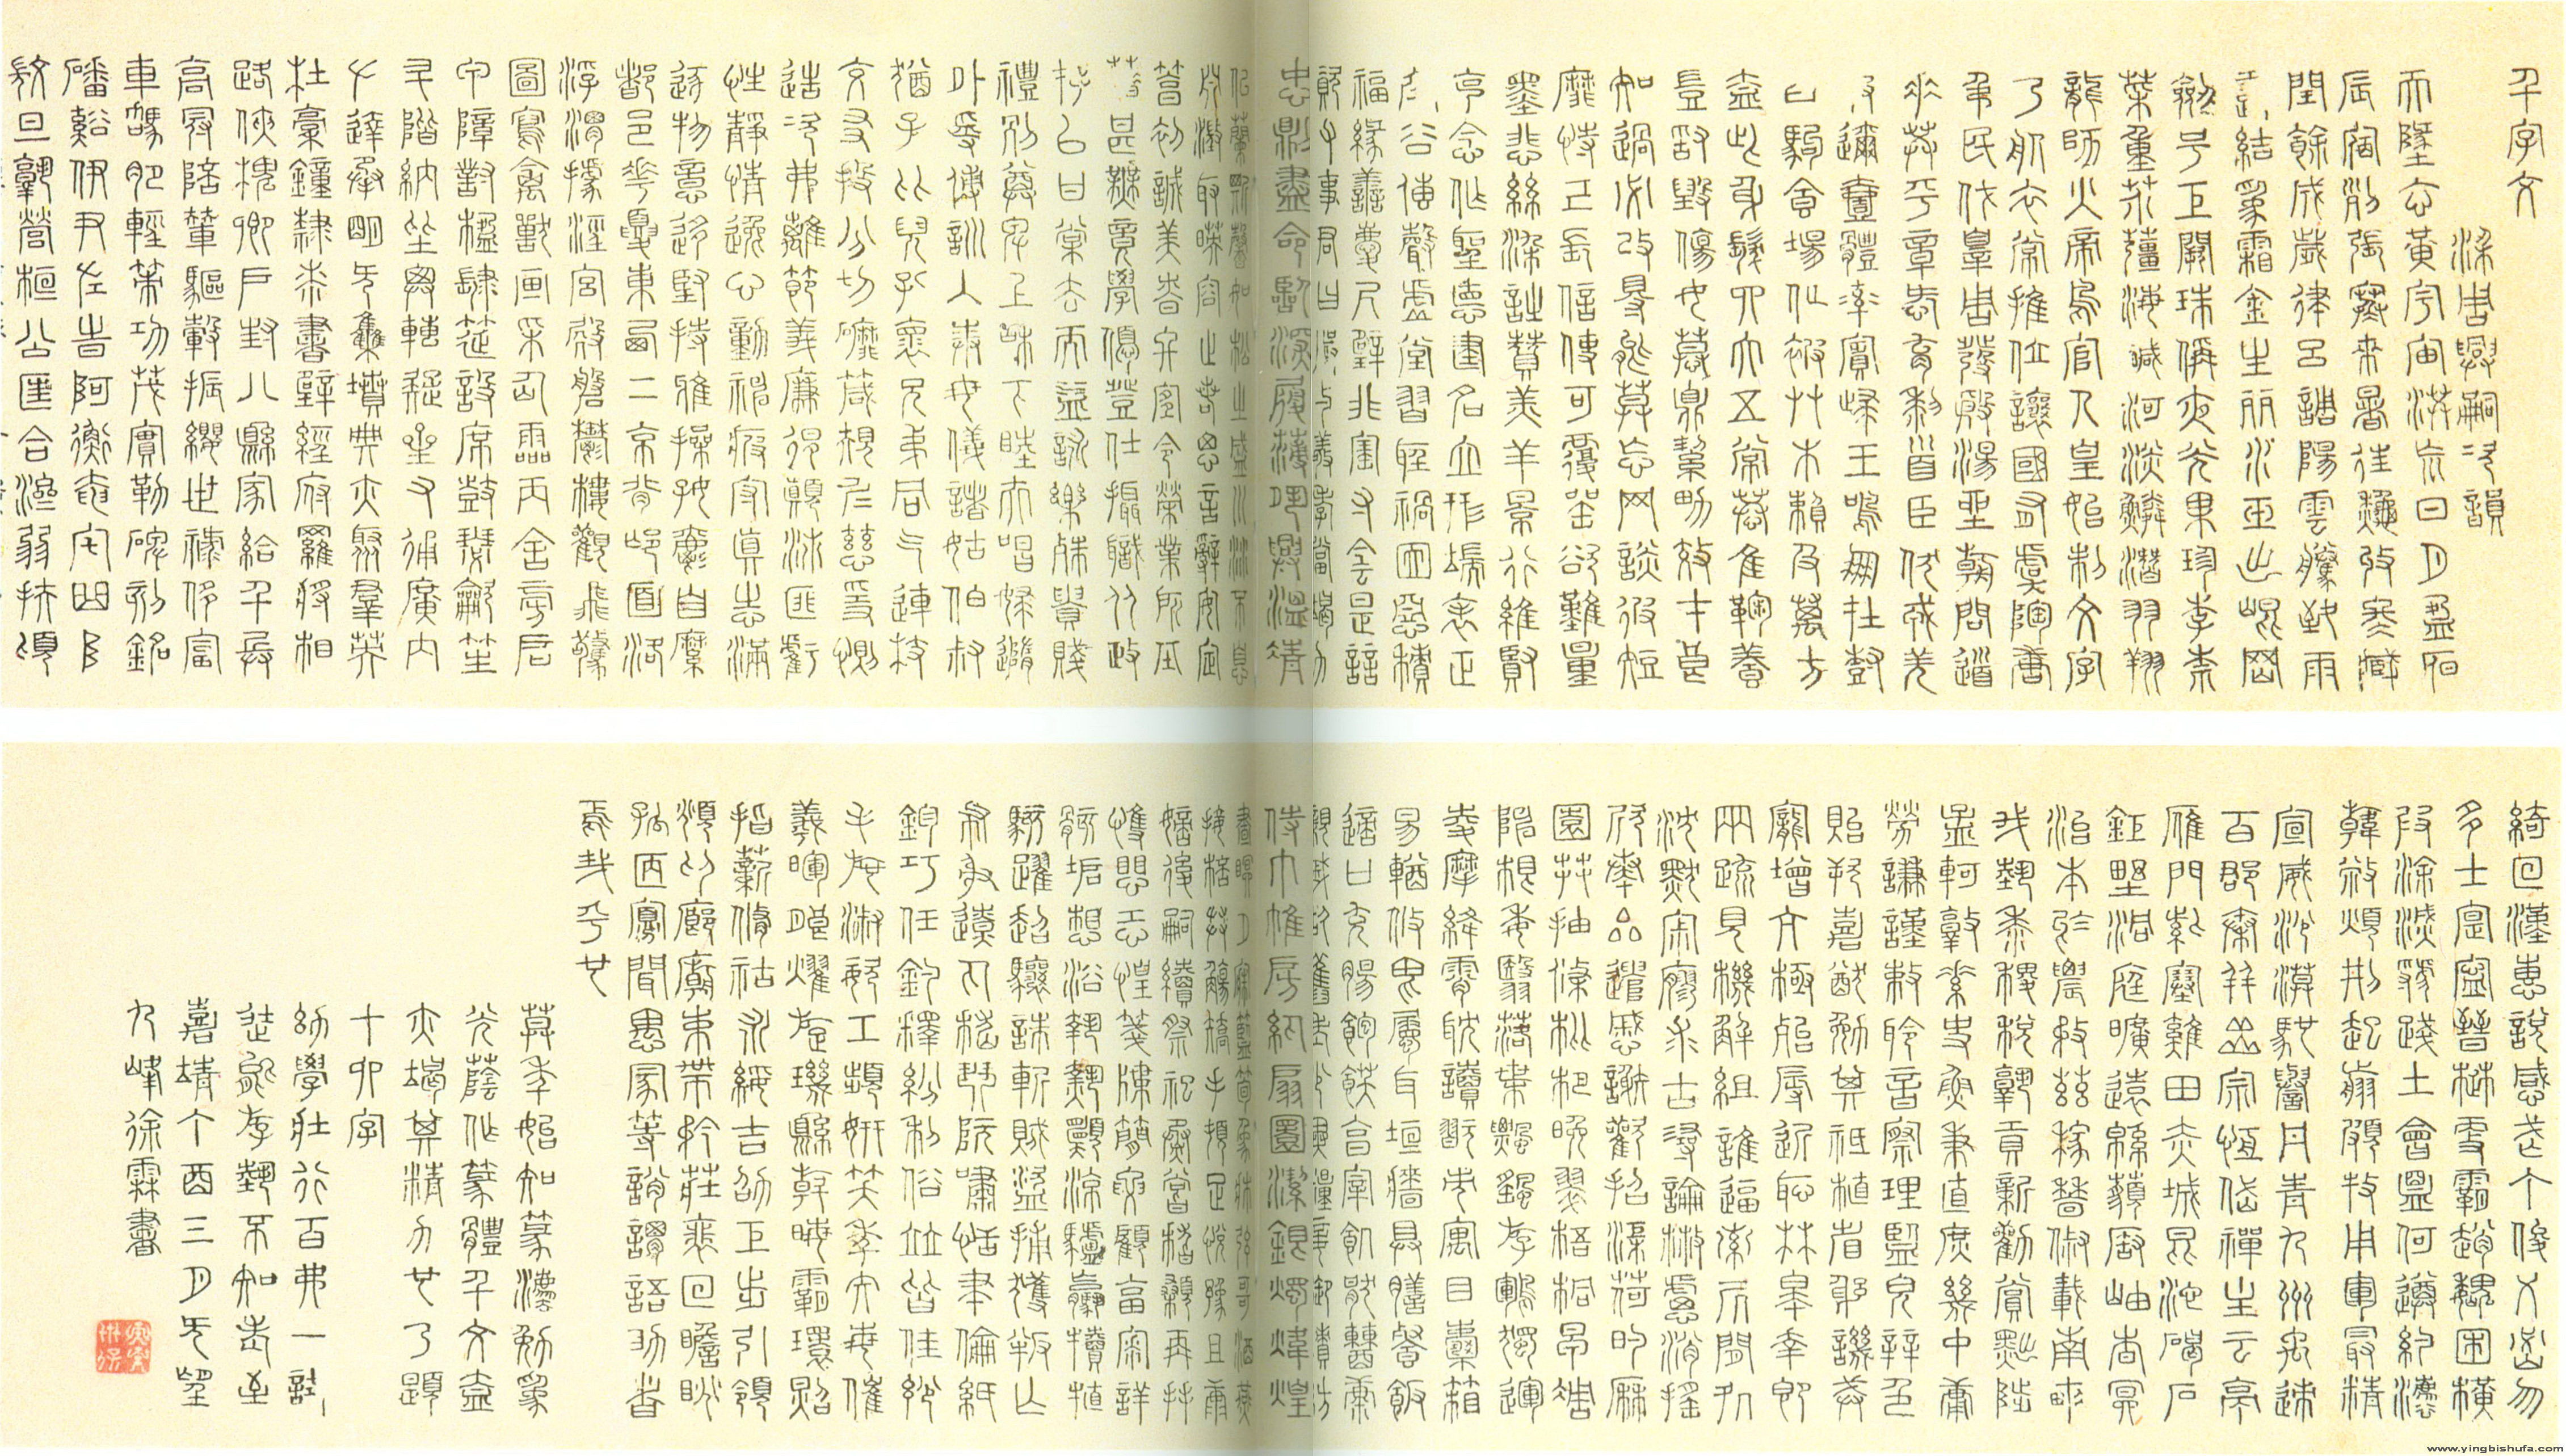 千字文
梁周興嗣次韻
天地玄黃宇宙洪荒日月盈昃
辰宿列張寒來暑往秋收冬藏
閏餘成歲律呂調陽雲騰致雨
露結為霜金生麗水玉出崑岡
劍號巨闕珠稱夜光果珍李柰
菜重芥薑海鹹河淡鱗潛羽翔
龍師火帝鳥官人皇始制文字
乃服衣裳推位讓國有虞陶唐
弔民伐罪周發殷湯坐朝問道
垂拱平章愛育黎首臣伏戎羌
遐邇壹體率賓歸王鳴鳳在樹
白駒食場化被草木賴及萬方
蓋此身髮四大五常恭惟鞠養
豈敢毀傷女慕貞絜男效才良
知過必改得能莫忘罔談彼短
靡恃己長信使可覆器欲難量
墨悲絲染詩讚羔羊景行維賢
克念作聖德建名立形端表正
空谷傳聲虛堂習聽禍因惡積
福緣善慶尺璧非寶寸陰是競
資父事君曰嚴與敬孝當竭力
忠則盡命臨深履薄夙興溫凊
似蘭斯馨如松之盛川流不息
淵澄取映容止若思言辭安定
篤初誠美慎終宜令榮業所基
籍甚無竟學優登仕攝職從政
存以甘棠去而益詠樂殊貴賤
禮別尊卑上和下睦夫唱婦隨
外受傅訓入奉母儀諸姑伯叔
猶子比兒孔懷兄弟同氣連枝
交友投分切磨箴規仁慈隱惻
造次弗離節義廉退顛沛匪虧
性靜情逸心動神疲守真志滿
逐物意移堅持雅操好爵自縻
都邑華夏東西二京背邙面洛
浮渭據涇宮殿盤鬱樓觀飛驚
圖寫禽獸畫采仙靈丙舍傍啟
甲帳對楹肆筵設席鼓瑟吹笙
升階納陛弁轉疑星右通廣內
左達承明既集墳典亦聚群英
杜稿鍾隸漆書壁經府羅將相
路俠槐卿戶封八縣家給千兵
高冠陪輦驅轂振纓世祿侈富
車駕肥輕策功茂實勒碑刻銘
磻溪伊尹佐時阿衡奄宅曲阜
微旦孰營桓公匡合濟弱扶傾
綺回漢惠說感武丁俊乂密勿
多士寔寧晉楚更霸趙魏困橫
假途滅虢踐土會盟何遵約法
韓弊煩刑起翦頗牧用軍最精
宣威沙漠馳譽丹青九州禹跡
百郡秦并嶽宗恒岱禪主云亭
雁門紫塞雞田赤城昆池碣石
鉅野洞庭曠遠綿邈巖岫杳冥
治本於農務茲稼穡俶載南畝
我藝黍稷稅熟貢新勸賞黜陟
孟軻敦素史魚秉直庶幾中庸
勞謙謹敕聆音察理鑒貌辨色
貽厥嘉猷勉其祗植省躬譏誡
寵增抗極殆辱近恥林皋幸即
兩疏見機解組誰逼索居閒處
沉默寂寥求古尋論散慮逍遙
欣奏累遣慼謝歡招渠荷的歷
園莽抽條枇杷晚翠梧桐早凋
陳根委翳落葉飄颻遊鵾獨運
凌摩絳霄耽讀翫市寓目囊箱
易輶攸畏屬耳垣牆具膳餐飯
適口充腸飽飫烹宰飢厭糟糠
親戚故舊老少異糧妾御績紡
侍巾帷房紈扇圓潔銀燭煒煌
晝眠夕寐藍筍象床弦歌酒讌
接杯舉觴矯手頓足悅豫且康
嫡後嗣續祭祀烝嘗稽顙再拜
悚懼恐惶牋牒簡要顧答審詳
骸垢想浴執熱願涼驢騾犢特
駭躍超驤誅斬賊盜捕獲叛亡
布射遼丸嵇琴阮嘯恬筆倫紙
鈞巧任釣釋紛利俗並皆佳妙
毛施淑姿工顰妍笑年矢每催
羲暉朗曜璇璣懸斡晦魄環照
指薪修祜永綏吉劭矩步引領
俯仰廊廟束帶矜莊徘徊瞻眺
孤陋寡聞愚蒙等誚謂語助者
焉哉乎也
莫年始知篆法勉為
光蔭作篆體千文盡
亦竭其精力也乃題
十四字
幼學壯行百弗一試
藝不知老至
嘉靖丁酉三月既望
九峰徐霖書
www.yingbishufa.com